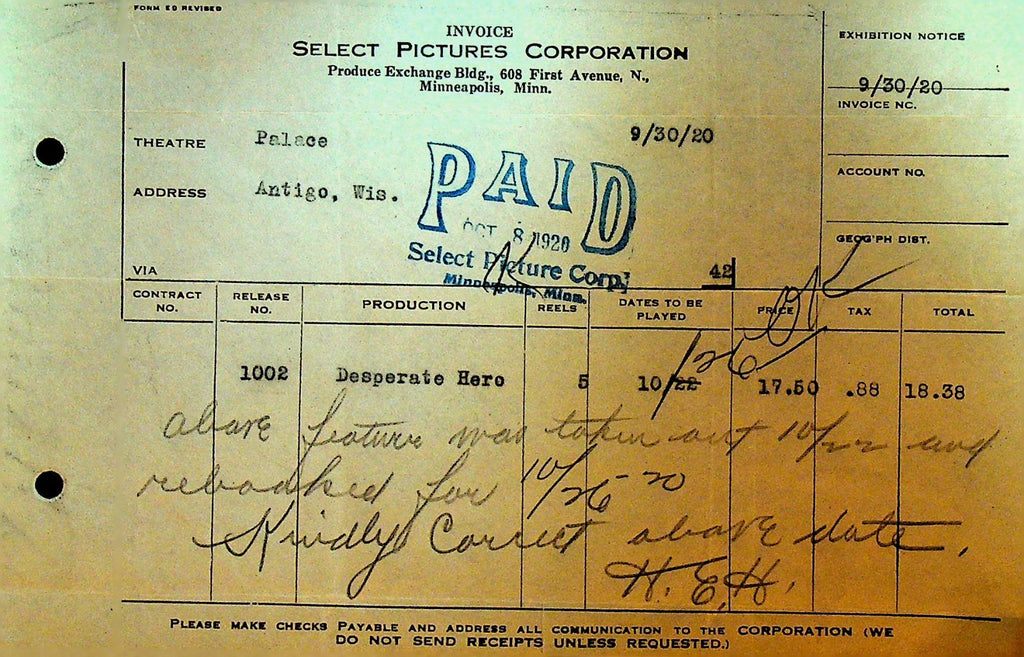 FORM EQ REVISED
INVOICE
SELECT PICTURES CORPORATION
Produce Exchange Bldg., 608 First Avenue, N.,
Minneapolis, Minn.
EXHIBITION NOTICE
9/30/20
INVOICE NO.
ACCOUNT NO.
GEOG'PH DIST.
THEATRE Palace 9/30/20
ADDRESS Antigo, Wis.
VIA 42
PAID
OCT 8 1920
Select Picture Corp.
Minneapolis, Minn.
OK
CONTRACT NO. RELEASE NO. PRODUCTION REELS DATES TO BE PLAYED PRICE TAX TOTAL
1002 Desperate Hero 5 10/22 /26 17.50 .88 18.38
above feature was taken out 10/22 and
rebooked for 10/26-20
Kindly Correct above date.
H.E.H.
PLEASE MAKE CHECKS PAYABLE AND ADDRESS ALL COMMUNICATION TO THE CORPORATION (WE
DO NOT SEND RECEIPTS UNLESS REQUESTED.)